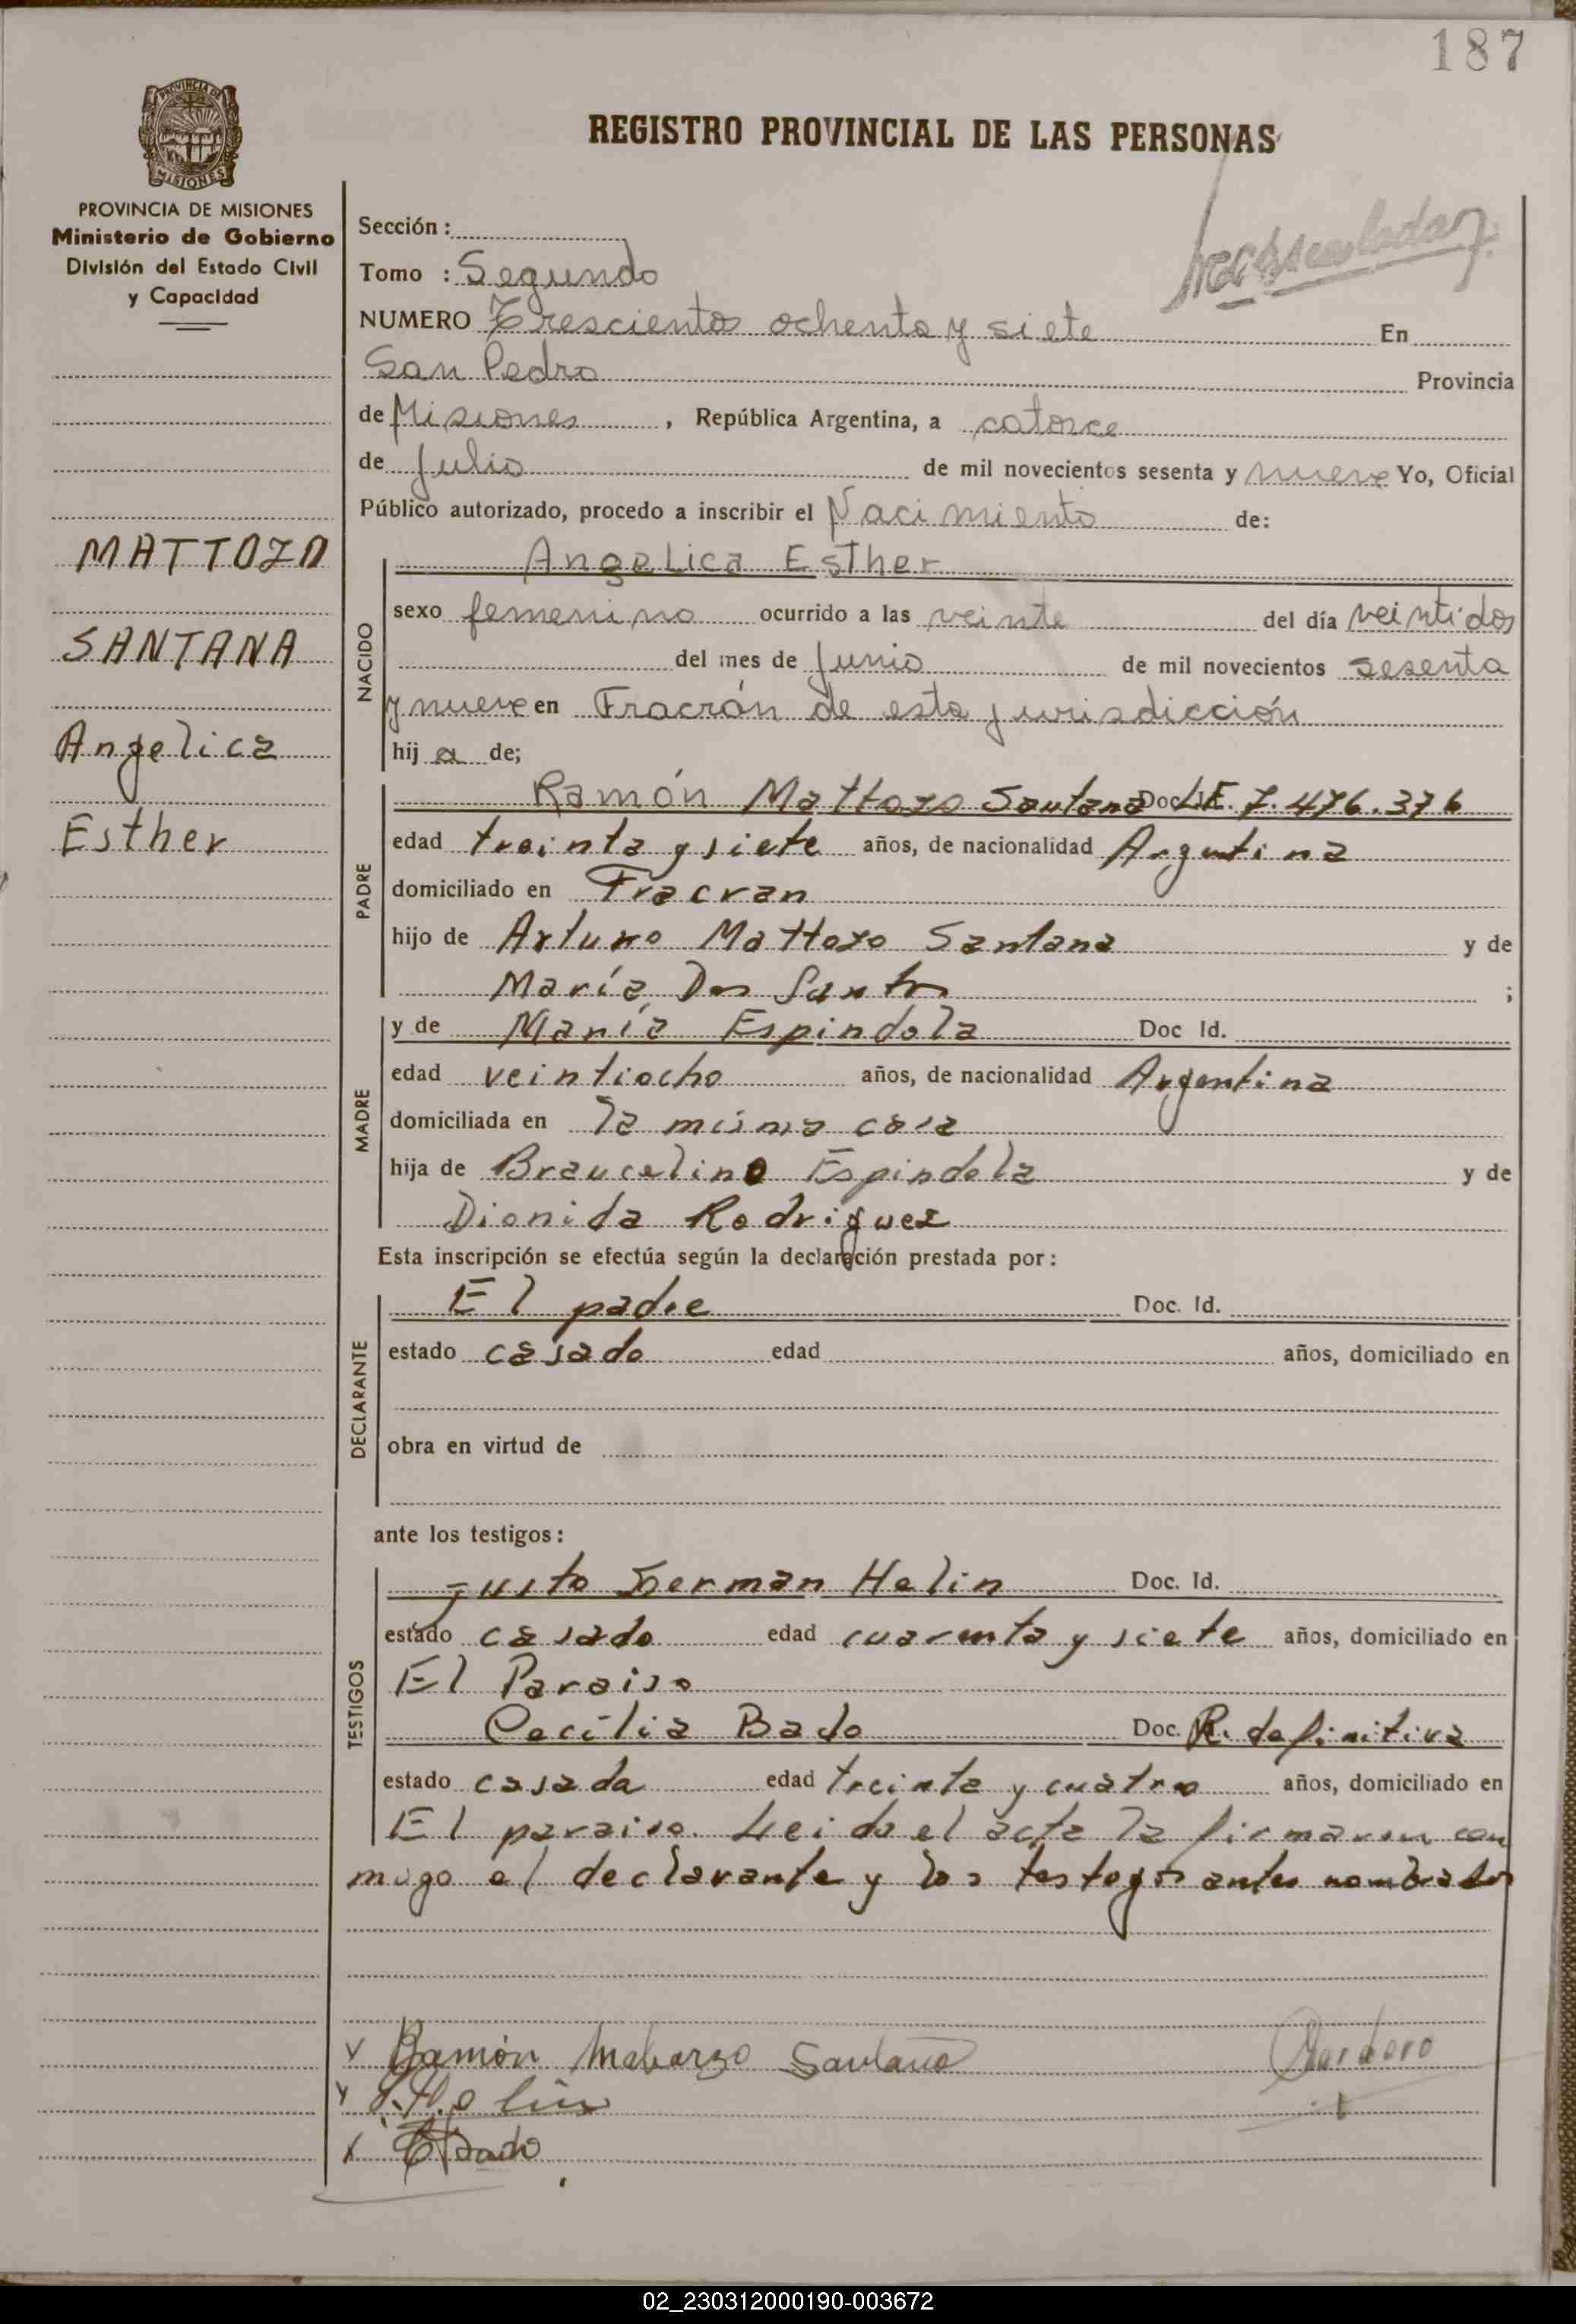 187
REGISTRO PROVINCIAL DE LAS PERSONAS
PROVINCIA DE MISIONES
PROVINCIA DE MISIONES
Ministerio de Gobierno
División del Estado Civil
y Capacidad
MATTOZO
SANTANA
Angelica
Esther
Sección:
Tomo : Segundo
NUMERO Trescientos ochenta y siete En
San Pedro Provincia
de Misiones, República Argentina, a catorce
de Julio de mil novecientos sesenta y nueve Yo, Oficial
Público autorizado, procedo a inscribir el Nacimiento de:
NACIDO
Angelica Esther
sexo femenino ocurrido a las veinte del día veintidos
del mes de Junio de mil novecientos sesenta
y nueve en Fracrán de esta jurisdicción
hij a de;
PADRE
Ramón Mattozo Santana Doc. L.E. 7.476.376
edad treinta y siete años, de nacionalidad Argentina
domiciliado en Fracran
hijo de Arturo Mattozo Santana y de
María Dos Santos ;
MADRE
y de María Espindola Doc Id.
edad veintiocho años, de nacionalidad Argentina
domiciliada en la misma casa
hija de Braucelino Espindola y de
Dionida Rodriguez
Esta inscripción se efectúa según la declaración prestada por:
DECLARANTE
El padre Doc. Id.
estado casado edad años, domiciliado en
obra en virtud de
ante los testigos:
TESTIGOS
Justo German Helin Doc. Id.
estado casado edad cuarenta y siete años, domiciliado en
El Paraiso
Cecilia Bado Doc. R. definitiva
estado casada edad treinta y cuatro años, domiciliado en
El paraiso. Leido el acta la firmaron con
migo el declarante y los testogos antes nombrados
Ramón Santana
J.Helin
CBado
02_230312000190-003672